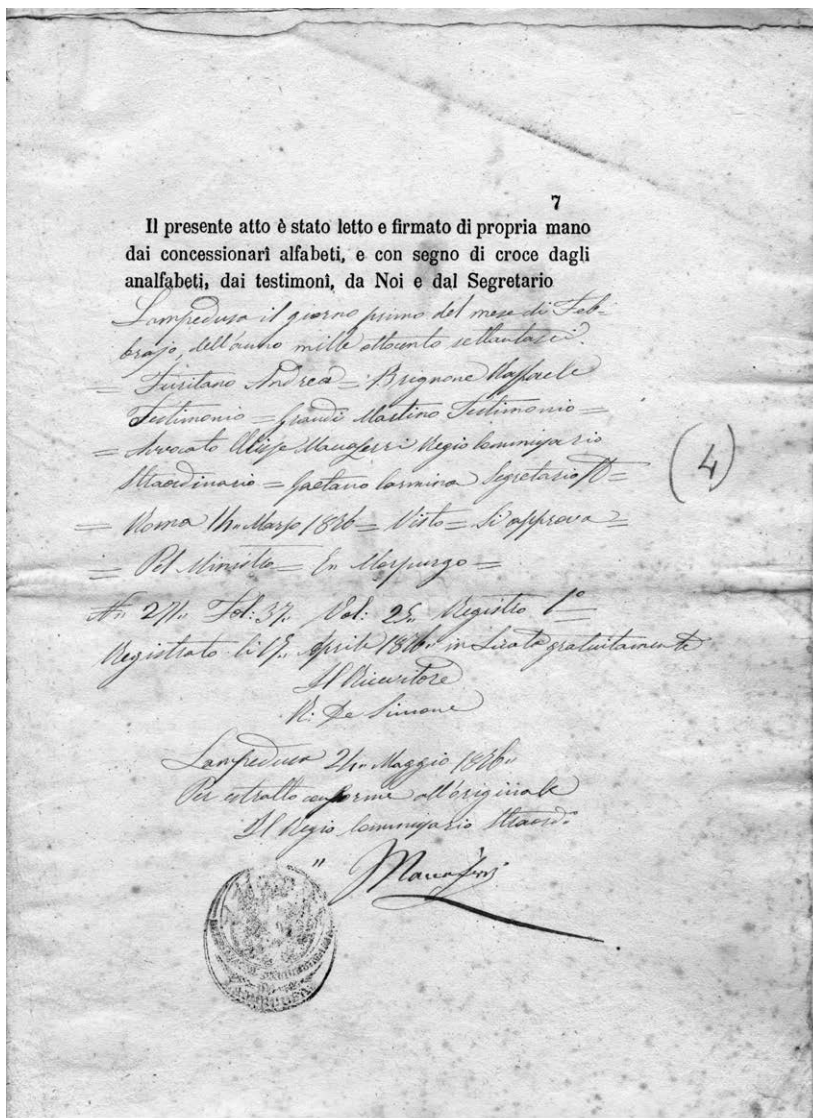 7
Il presente atto è stato letto e firmato di propria mano
dai concessionarî alfabeti, e con segno di croce dagli
analfabeti, dai testimonî, da Noi e dal Segretario
Lampedusa il giorno primo del mese di Feb-
brajo, dell'anno mille ottocento settantasei.
= Andrea = Brignone Raffaele
Testimonio = Grandi Martino Testimonio =
= Avvocato Regio Commissario
Straordinario = Gaetano Carmina Segretario =
= Roma 14 Marzo 1876 = Visto = Si approva =
= Pel Ministro = Morpurgo =
(4)
Fol: 37 Vol: 25 Registro 1°
Registrato li Aprile 1876 in Licata gratuitamente
Il Ricevitore
De Simone
Lampedusa 24 Maggio 1876
Per estratto conforme all'originale
Il Regio Commissario Straord.